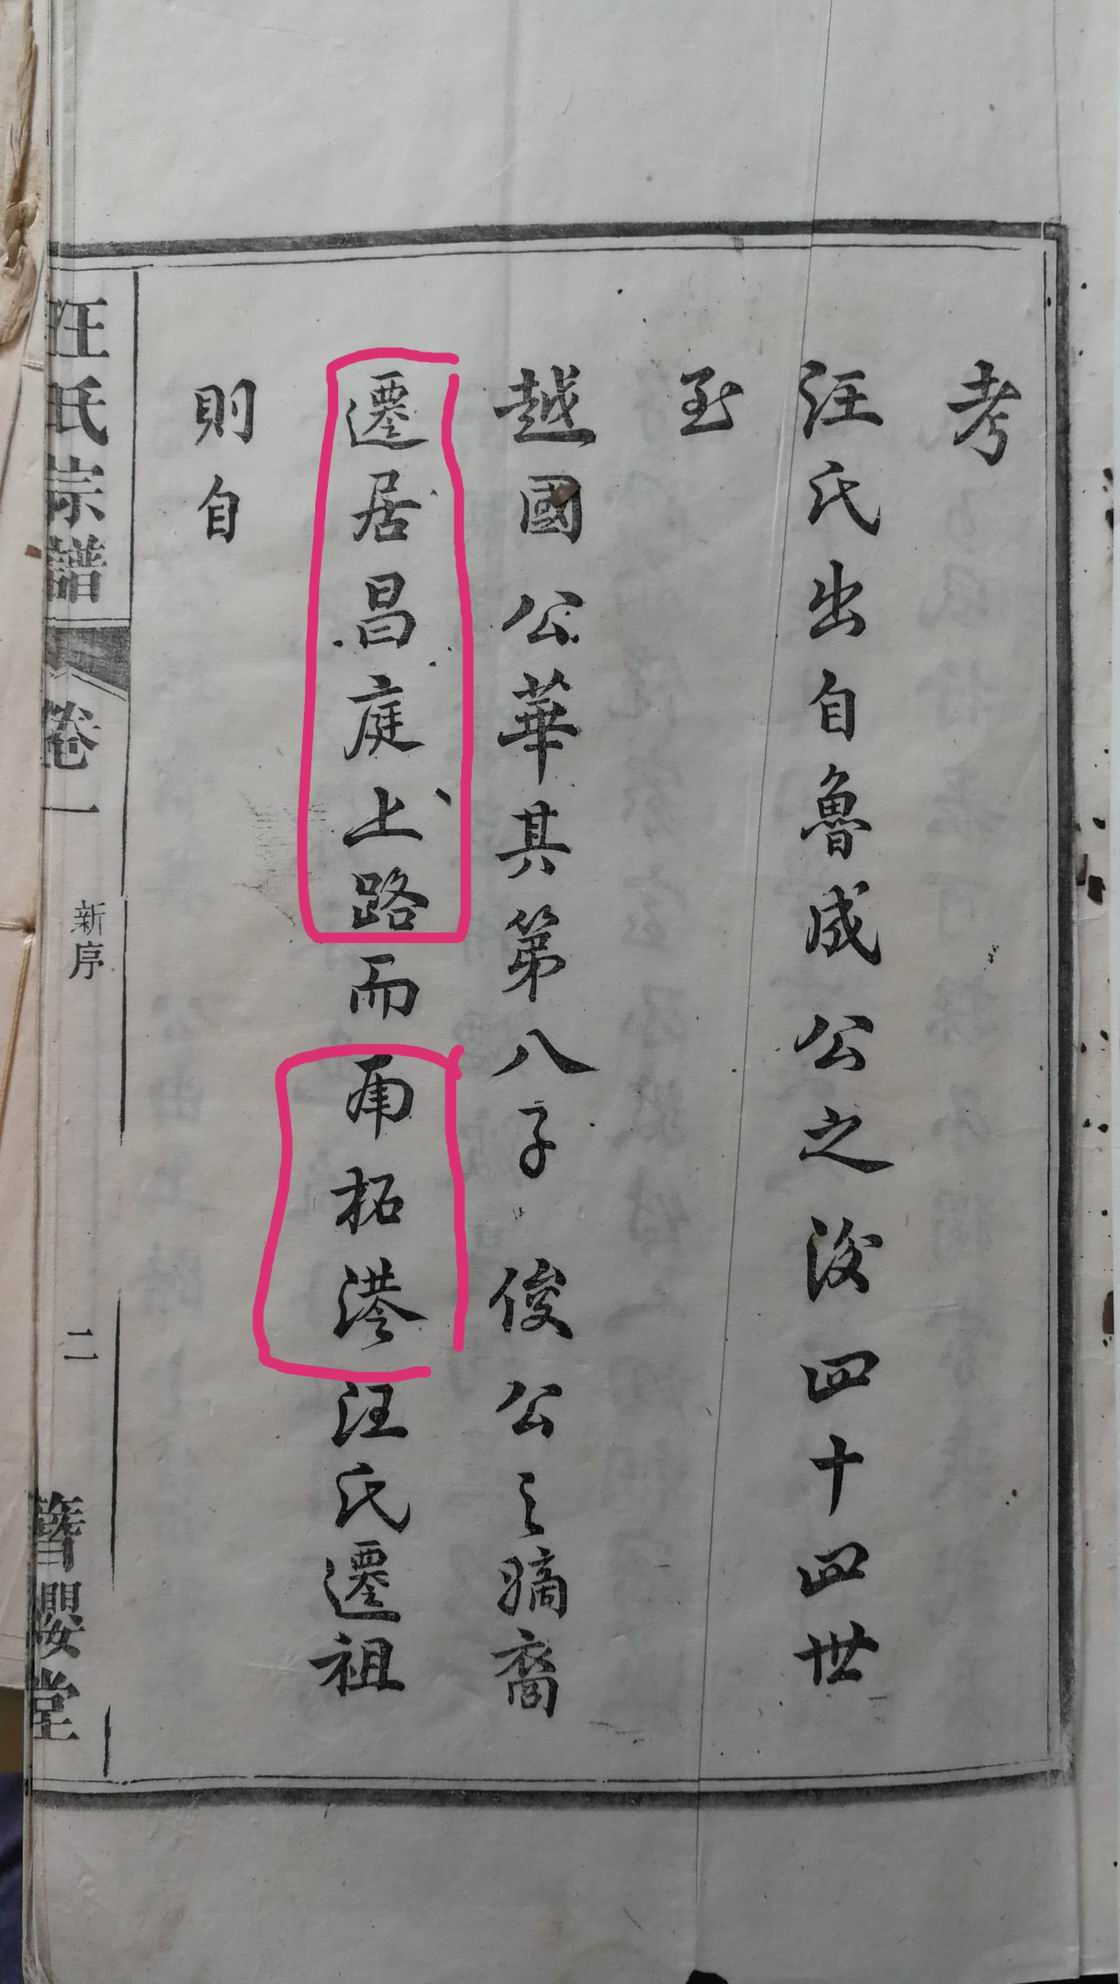 考
汪氏出自魯成公之後四十四世
至
越國公華其第八子俊公之嫡裔
遷居昌庭上路而拓港汪氏遷祖
則自
汪氏宗譜
卷一
新序
二
簪纓堂